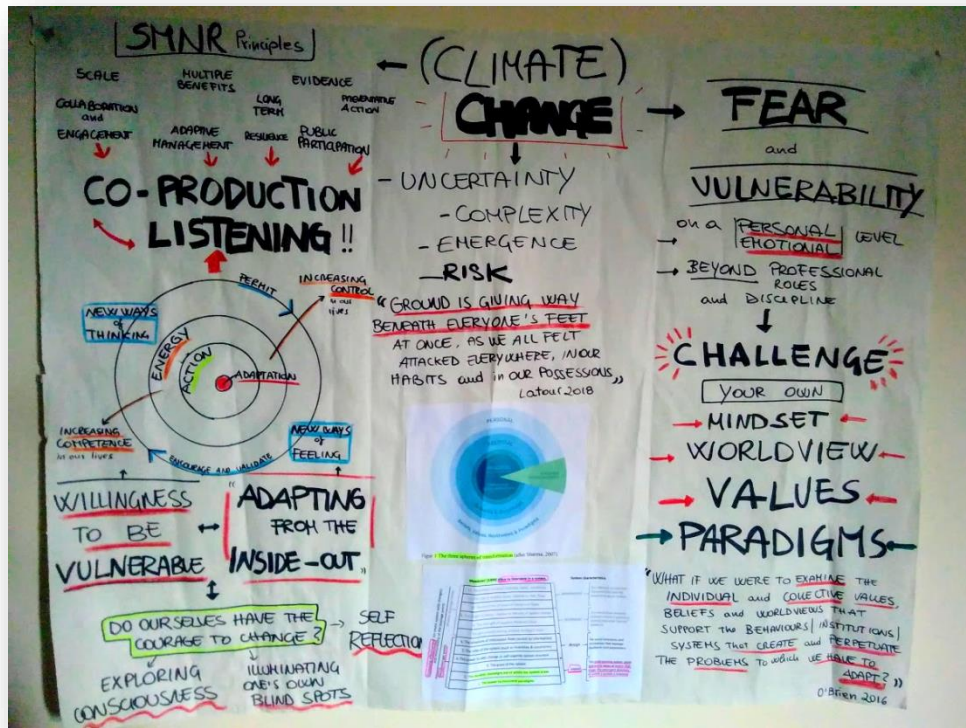 SMNR Principles
SCALE
MULTIPLE
BENEFITS
EVIDENCE
COLLABORATION
and
ENGAGEMENT
ADAPTIVE
MANAGEMENT
LONG
TERM
RESILIENCE
PREVENTATIVE
ACTION
PUBLIC
PARTICIPATION
CO-PRODUCTION
LISTENING!!
PERMIT
INCREASING
CONTROL
in our
lives
NEW WAYS
of
THINKING
ENERGY
ACTION
ADAPTATION
INCREASING
COMPETENCE
in our lives
NEW WAYS
of
FEELING
ENCOURAGE AND VALIDATE
WILLINGNESS
TO BE
VULNERABLE
"ADAPTING
FROM THE
INSIDE-OUT"
DO OURSELVES HAVE THE
COURAGE TO CHANGE?
SELF
REFLECTION
EXPLORING
CONSCIOUSNESS
ILLUMINATING
ONE'S OWN
BLIND SPOTS
(CLIMATE)
CHANGE
- UNCERTAINTY
- COMPLEXITY
- EMERGENCE
- RISK
"GROUND IS GIVING WAY
BENEATH EVERYONE'S FEET
AT ONCE, AS WE ALL FELT
ATTACKED EVERYWHERE, IN OUR
HABITS and in OUR POSSESSIONS"
Latour 2018
PERSONAL
FEAR
and
VULNERABILITY
on a PERSONAL LEVEL
EMOTIONAL
BEYOND PROFESSIONAL
ROLES
and DISCIPLINE
CHALLENGE
YOUR OWN
MINDSET
WORLDVIEW
VALUES
PARADIGMS
"WHAT IF WE WERE TO EXAMINE THE
INDIVIDUAL and COLECTIVE VALUES,
BELIEFS and WORLDVIEWS THAT
SUPPORT THE BEHAVIOURS| INSTITUTIONS|
SYSTEMS that CREATE and PERPETUATE
THE PROBLEMS to which WE HAVE TO
ADAPT?"
O'BRIEN 2016